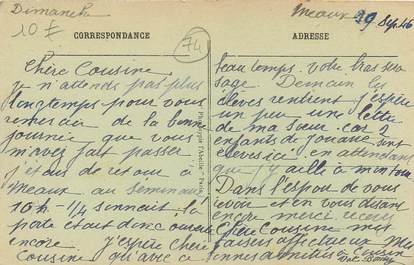 Dimanche
10 F
CORRESPONDANCE
74
Chère Cousine
je n'attends pas plus
longtemps pour vous
remercier de la bonne
journée que vous
m'avez fait passer
j'étais de retour à
Meaux au Séminaire
10h -1/4 sonnait, la
porte était donc ouverte
encore. J'espère Chère
Cousine qu'avec ce
Meaux 29 Sept 46
ADRESSE
beau temps votre bras sera
sage. Demain les
élèves rentrent j'espère
un peu une lettre
de ma Sœur car 2
enfants de Jouarre sont
élèves ici en attendant
que j'y aille à mon tour
Dans l'espoir de vous
revoir et en vous disant
encore merci recevez
Chère Cousine mes
baisers affectueux Mes
bonnes amitiés à Cousin